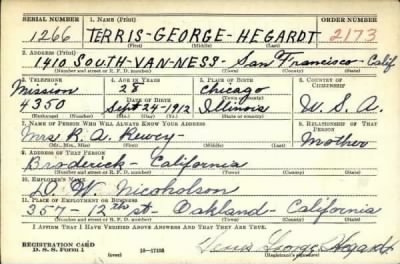 SERIAL NUMBER 1. NAME (Print) ORDER NUMBER
1266 TERRIS-GEORGE-HEGARDT 2173
(First) (Middle) (Last)
2. ADDRESS (Print)
1410 SOUTH-VAN-NESS- San Francisco- Calif.
(Number and street or R. F. D. number) (Town) (County) (State)
3. TELEPHONE 4. AGE IN YEARS 5. PLACE OF BIRTH 6. COUNTRY OF CITIZENSHIP
Mission 28 Chicago
4350 DATE OF BIRTH (Town or county)
Sept 24-1912 Illinois U. S. A.
(Mo.) (Day) (Yr.) (State or country)
7. NAME OF PERSON WHO WILL ALWAYS KNOW YOUR ADDRESS 8. RELATIONSHIP OF THAT PERSON
Mrs R. A. Mother
(Mr., Mrs., Miss) (First) (Middle) (Last)
9. ADDRESS OF THAT PERSON
Broderick - California
(Number and street or R. F. D. number) (Town) (County) (State)
10. EMPLOYER'S NAME
D. W. Nicholson
11. PLACE OF EMPLOYMENT OR BUSINESS
357- 12th st- Oakland- California
(Number and street or R. F. D. number) (Town) (County) (State)
I AFFIRM THAT I HAVE VERIFIED ABOVE ANSWERS AND THAT THEY ARE TRUE.
REGISTRATION CARD
D. S. S. Form 1 (over) 16-17105 Terris George Hegardt
(Registrant's signature)